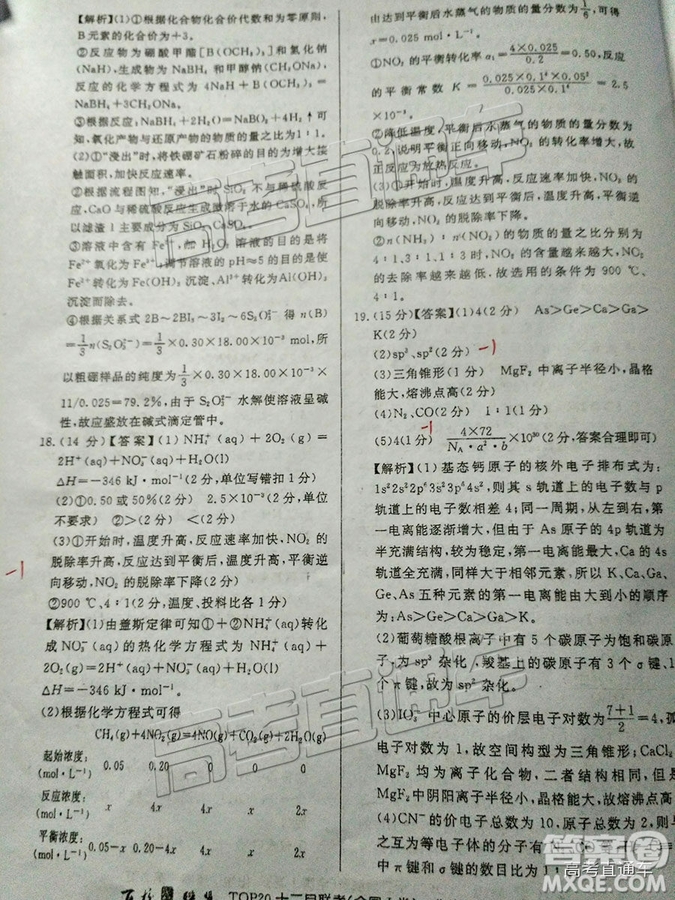 【解析】(1)①根据化合物化合价代数和为零原则,
B元素的化合价为+3。
②反应物为硼酸甲酯[B(OCH₃)₃]和氢化钠
(NaH),生成物为NaBH₄和甲醇钠(CH₃ONa),
反应的化学方程式为4NaH+B(OCH₃)₃=
NaBH₄+3CH₃ONa。
③根据反应:NaBH₄+2H₂O=NaBO₂+4H₂↑可
知,氧化产物与还原产物的物质的量之比为1:1。
(2)①"浸出"时,将铁硼矿石粉碎的目的为增大接
触面积,加快反应速率。
②根据流程图知,"浸出"时SiO₂不与稀硫酸反
应,CaO与稀硫酸反应生成微溶于水的CaSO₄,所
以滤渣1主要成分为SiO₂、CaSO₄。
③溶液中含有Fe²⁺,加H₂O₂溶液的目的是将
Fe²⁺氧化为Fe³⁺,调节溶液的pH≈5的目的是使
Fe³⁺转化为Fe(OH)₃沉淀、Al³⁺转化为Al(OH)₃
沉淀而除去。
④根据关系式2B~2BI₃~3I₂~6S₂O₃²⁻得n(B)
=1/3 n(S₂O₃²⁻)=1/3×0.30×18.00×10⁻³ mol,所
以粗硼样品的纯度为1/3×0.30×18.00×10⁻³×
11/0.025=79.2%,由于S₂O₃²⁻水解使溶液呈碱
性,故应盛放在碱式滴定管中。
18.(14分)【答案】(1)NH₄⁺(aq)+2O₂(g)=
2H⁺(aq)+NO₃⁻(aq)+H₂O(l)
△H=-346 kJ·mol⁻¹(2分,单位写错扣1分)
(2)①0.50或50%(2分) 2.5×10⁻³(2分,单位
不要求) ②>(2分) <(2分)
(3)①开始时,温度升高,反应速率加快,NO₂的
脱除率升高,反应达到平衡后,温度升高,平衡逆
向移动,NO₂的脱除率下降(2分)
-1
②900℃、4:1(2分,温度、投料比各1分)
【解析】(1)由盖斯定律可知①+②NH₄⁺(aq)转化
成NO₃⁻(aq)的热化学方程式为NH₄⁺(aq)+
2O₂(g)=2H⁺(aq)+NO₃⁻(aq)+H₂O(l)
△H=-346 kJ·mol⁻¹。
(2)根据化学方程式可得
CH₄(g)+4NO₂(g)=4NO(g)+CO₂(g)+2H₂O(g)
起始浓度:
(mol·L⁻¹) 0.05 0.20 0 0 0
反应浓度:
(mol·L⁻¹) x 4x 4x x 2x
平衡浓度:
(mol·L⁻¹) 0.05-x 0.20-4x 4x x 2x
由达到平衡后水蒸气的物质的量分数为1/6,可得
x=0.025 mol·L⁻¹。
①NO₂的平衡转化率α₁=4×0.025/0.2=0.50,反应
的平衡常数K=0.025×0.1⁴×0.05²/0.025×0.1⁴=2.5
×10⁻³。
②降低温度,平衡后水蒸气的物质的量分数为
0.2,说明平衡正向移动,NO₂的转化率增大,故
正反应为放热反应。
(3)①开始时,温度升高,反应速率加快,NO₂的
脱除率升高,反应达到平衡后,温度升高,平衡逆
向移动,NO₂的脱除率下降。
②n(NH₃):n(NO₂)的物质的量之比分别为
4:1、3:1、1:3时,NO₂的含量越来越大,NO₂
的去除率越来越低,故选用的条件为900℃、
4:1。
19.(15分)【答案】(1)4(2分) As>Ge>Ca>Ga>
K(2分)
(2)sp³、sp²(2分) -1
(3)三角锥形(1分) MgF₂中离子半径小,晶格
能大,熔沸点高(2分)
(4)N₂、CO(2分)
-1
(5)4(1分) 4×72/Nₐ·a²·b×10³⁰(2分,答案合理即可)
【解析】(1)基态钙原子的核外电子排布式为:
1s²2s²2p⁶3s²3p⁶4s²,则其s轨道上的电子数与p
轨道上的电子数之比为2:3。同一周期,从左到右,第
一电离能逐渐增大,但由于As原子的4p轨道为
半充满结构,较为稳定,第一电离能最大,Ca的4s
轨道全充满,同样大于相邻元素,所以K、Ca、Ga、
Ge、As五种元素的第一电离能由大到小的顺序
为:As>Ge>Ca>Ga>K。
(2)葡萄糖酸根离子中有5个碳原子为饱和碳原
子,为sp³杂化,羧基上的碳原子有3个σ键、1
个π键,故为sp²杂化。
(3)IO₃⁻中心原子的价层电子对数为7+1/2=4,孤
电子对数为1,故空间构型为三角锥形;CaCl₂
MgF₂均为离子化合物,二者结构相同,但
MgF₂中阴阳离子半径小,晶格能大,故熔沸点高
(4)CN⁻的价电子总数为10,原子总数为2,
之互为等电子体的分子
子有1个σ键和2个π键,
百校联盟 TOP20十二月联考(全国
高考直通车
答案圈
MXQE.COM
高考直通车